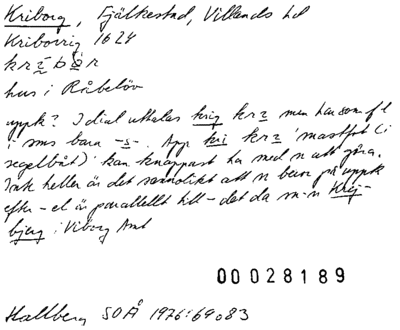 Kriborg, Fjälkestad, Villands hd
Kribovrig 1624
hus i Råbelöv
uppk? I dial uttalas krig men har som fl
i sms bara -s-. App kri 'mastfot (i
segelbåt)' kan knappast ha med n att göra.
Ink heller är det sannolikt att n beror på uppk
efter - el är parallellt till - det da m-n Krej-
bjerg i Viborg Amt
00028189
Hallberg SOÅ 1976: 69 o 83